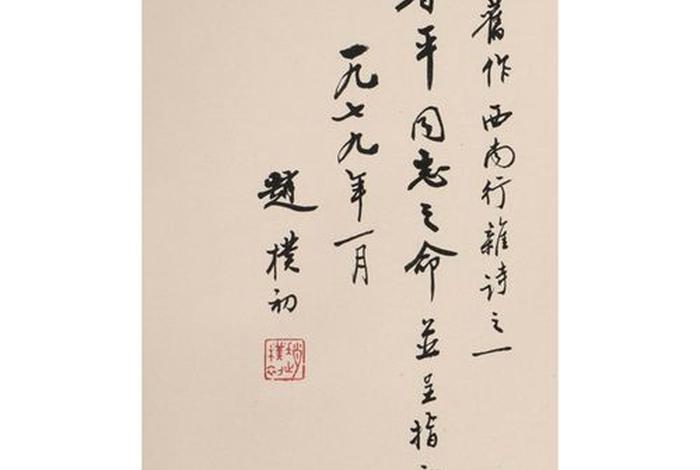 舊作西南行雜诗之一
平同志之命並呈指
一九七九年一月
趙樸初
趙樸初